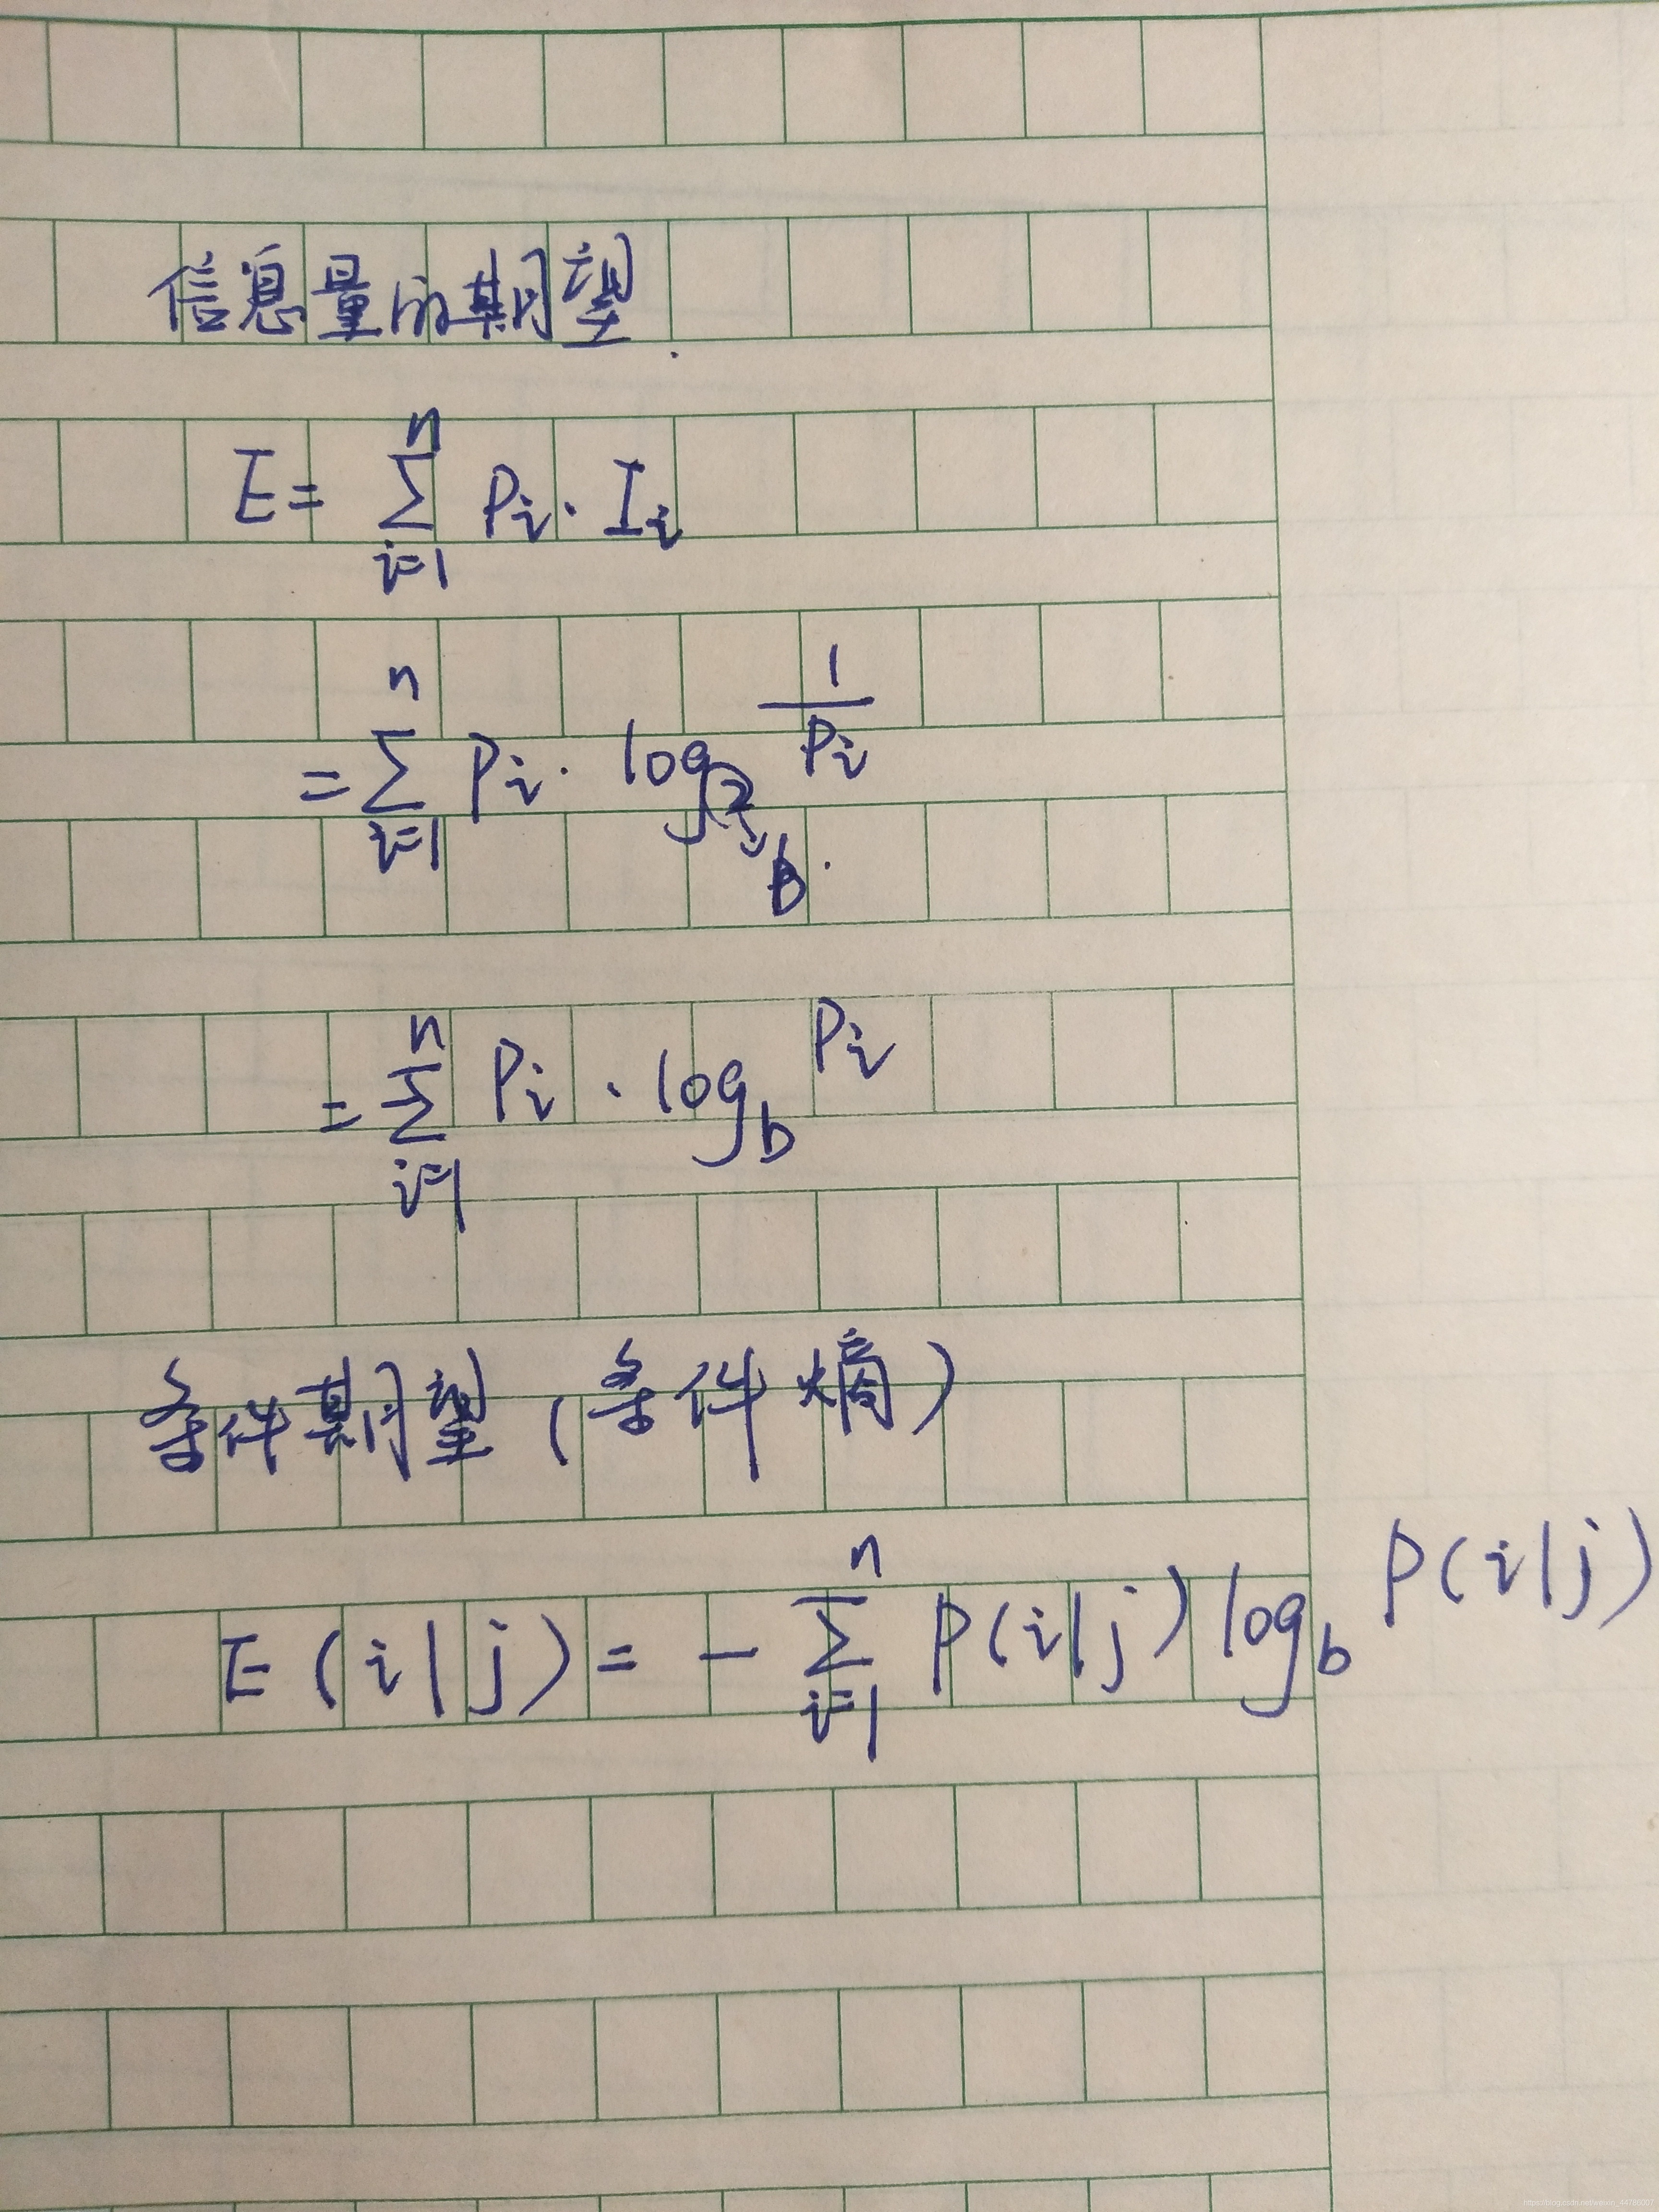 信息量的期望.
E = ∑_{i=1}^{n} P_i · I_i
= ∑_{i=1}^{n} P_i · log_2 1/P_i
b.
= ∑_{i=1}^{n} P_i · log_b P_i
条件期望(条件熵)
E(i|j) = - ∑_{i=1}^{n} P(i|j) log_b P(i|j)